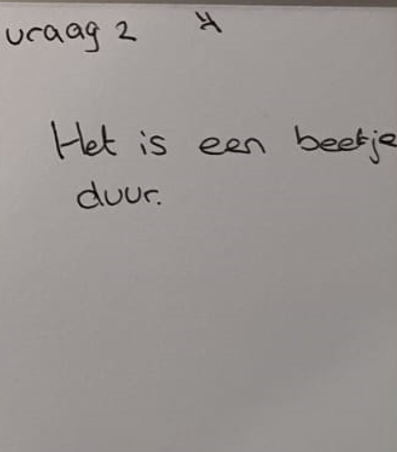 vraag 2
Het is een beetje
duur.